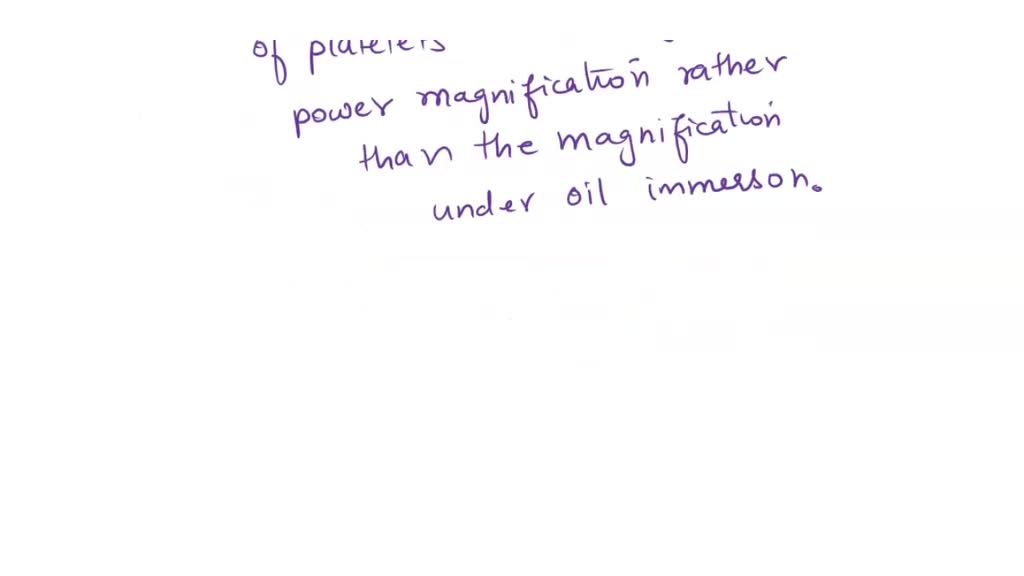 of platelets
power magnification rather
than the magnification
under oil immerson.